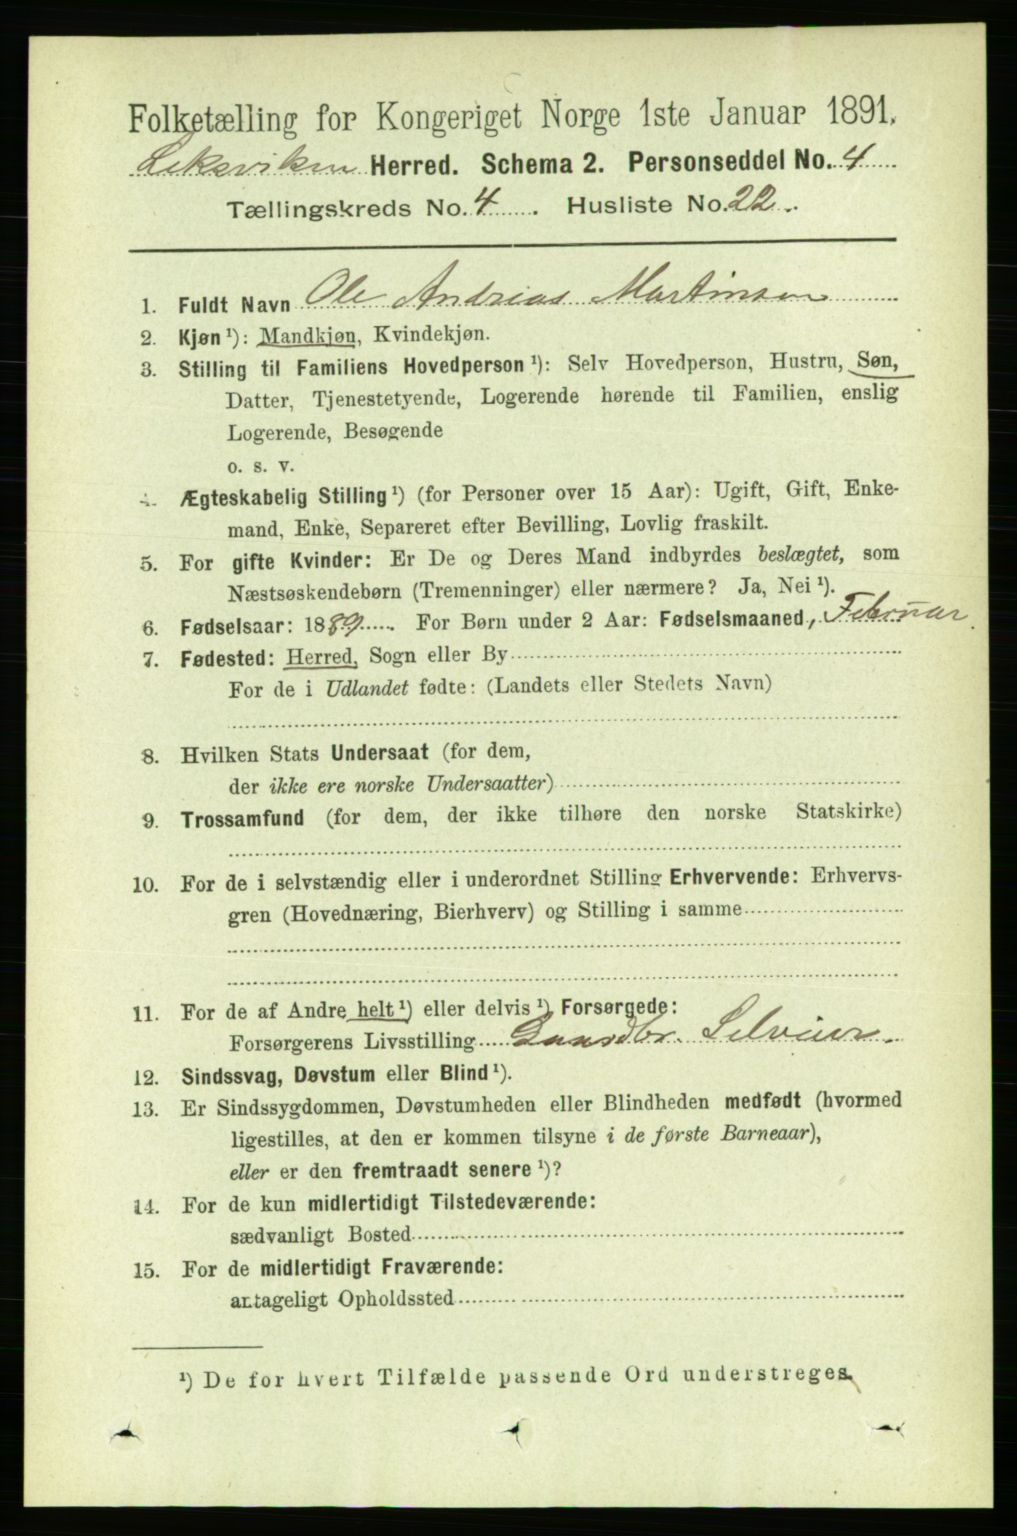 Folketælling for Kongeriget Norge 1ste Januar 1891.
Leksviken Herred. Schema 2. Personseddel No. 4
Tællingskreds No. 4. Husliste No. 22.
1. Fuldt Navn Ole Andreas Martinsen
2. Kjøn ¹): Mandkjøn, Kvindekjøn.
3. Stilling til Familiens Hovedperson ¹): Selv Hovedperson, Hustru, Søn,
Datter, Tjenestetyende, Logerende hørende til Familien, enslig
Logerende, Besøgende
o. s. v.
4. Ægteskabelig Stilling ¹) (for Personer over 15 Aar): Ugift, Gift, Enke-
mand, Enke, Separeret efter Bevilling, Lovlig fraskilt.
5. For gifte Kvinder: Er De og Deres Mand indbyrdes beslægtet, som
Næstsøskendebørn (Tremenninger) eller nærmere? Ja, Nei ¹).
6. Fødselsaar: 1889. For Børn under 2 Aar: Fødselsmaaned, Februar.
7. Fødested: Herred, Sogn eller By
For de i Udlandet fødte: (Landets eller Stedets Navn)
8. Hvilken Stats Undersaat (for dem,
der ikke ere norske Undersaatter)
9. Trossamfund (for dem, der ikke tilhøre den norske Statskirke)
10. For de i selvstændig eller i underordnet Stilling Erhvervende: Erhvervs-
gren (Hovednæring, Bierhverv) og Stilling i samme
11. For de af Andre helt ¹) eller delvis ¹) Forsørgede:
Forsørgerens Livsstilling Gaardbr. Selveier.
12. Sindssvag, Døvstum eller Blind ¹).
13. Er Sindssygdommen, Døvstumheden eller Blindheden medfødt (hvormed
ligestilles, at den er kommen tilsyne i de første Barneaar),
eller er den fremtraadt senere ¹)?
14. For de kun midlertidigt Tilstedeværende:
sædvanligt Bosted
15. For de midlertidigt Fraværende:
antageligt Opholdssted
¹) De for hvert Tilfælde passende Ord understreges.